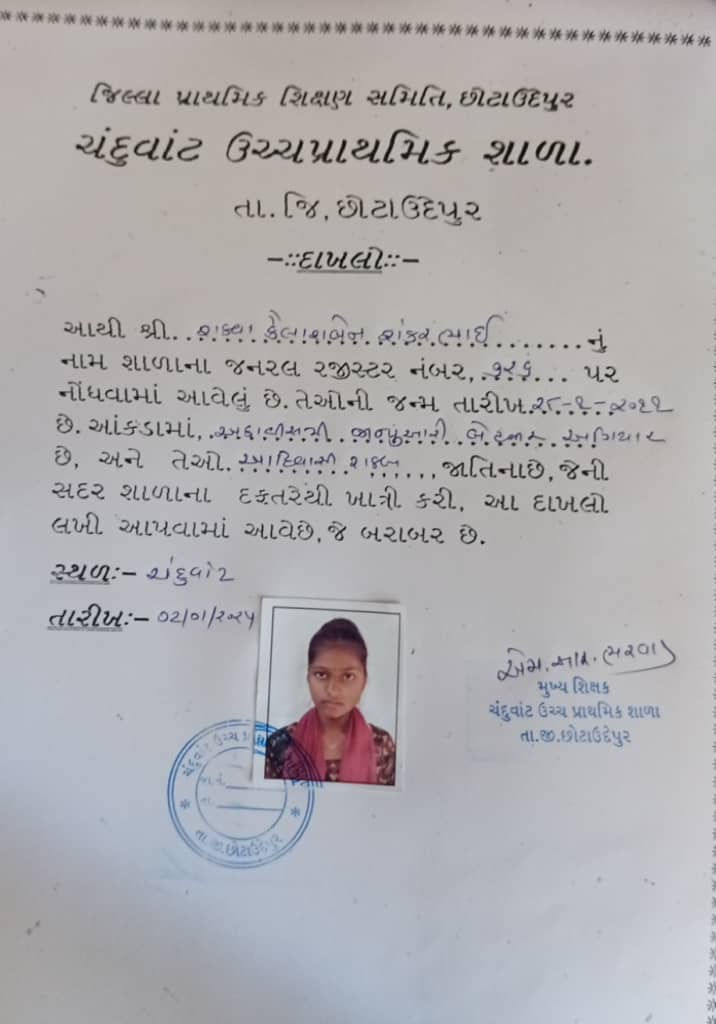 જિલ્લા પ્રાથમિક શિક્ષણ સમિતિ, છોટાઉદેપુર
ચંદુવાંટ ઉચ્ચપ્રાથમિક શાળા.
તા. જિ, છોટાઉદેપુર
-ઃઃદાખલોઃઃ-
આથી શ્રી.. કૈલાશબેન શંકરભાઈ ........ નું
નામ શાળાના જનરલ રજીસ્ટર નંબર, ... પર
નોંધવામાં આવેલું છે. તેઓની જન્મ તારીખ. ૨૮-૧-૨૦૧૧
છે. આંકડામાં, અઠ્ઠાવીસમી જાન્યુઆરી બે હજાર અગિયાર
છે, અને તેઓ. આદિવાસી .... જાતિના છે, જેની
સદર શાળાના દફતરેથી ખાત્રી કરી, આ દાખલો
લખી આપવામાં આવેછે, જે બરાબર છે.
સ્થળઃ- ચંદુવાંટ
તારીખઃ- ૦૨/૦૧/૨૦૨૫
એમ. આર.
મુખ્ય શિક્ષક
ચંદુવાંટ ઉચ્ચ પ્રાથમિક શાળા
તા.જી.છોટાઉદેપુર
ચંદુવાંટ ઉચ્ચ
જા.નં.
તા.
તા.જી.છોટાઉદેપુર